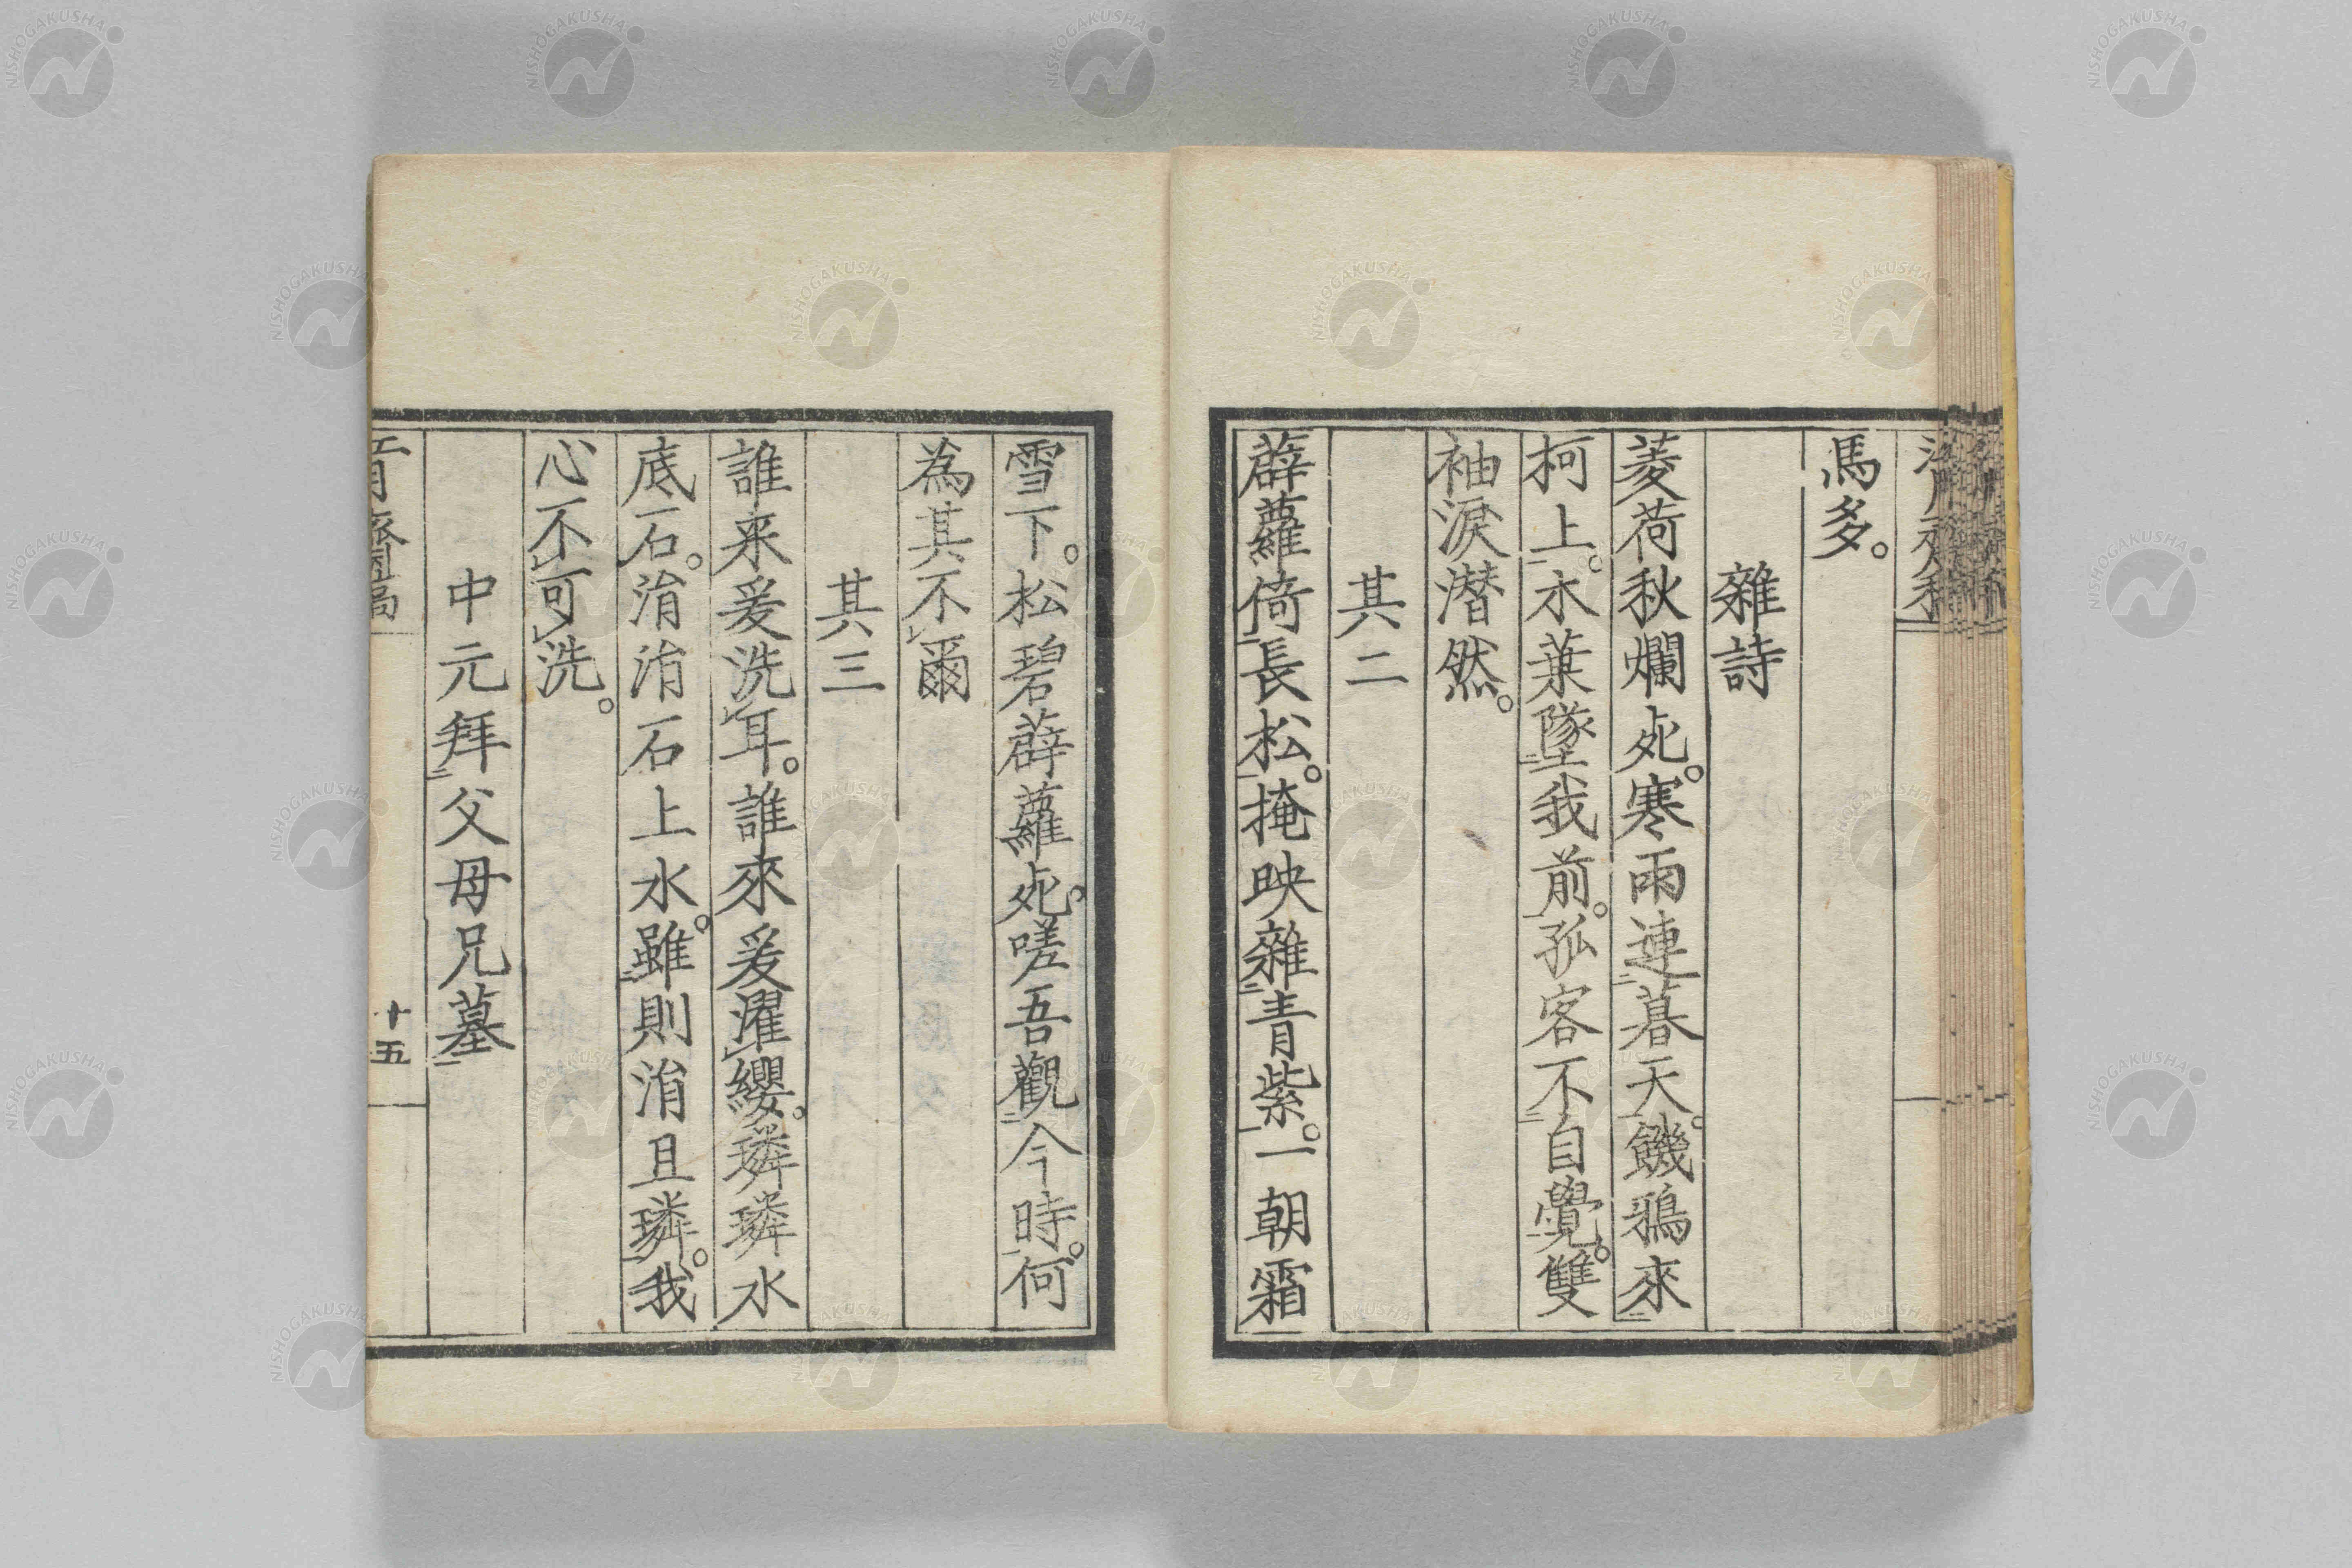 馬多。
雜詩
菱荷秋爛死。寒雨連暮天。饑鴉來
柯上。木葉墜我前。孤客不自覺。雙
袖淚潸然。
其二
薜蘿倚長松。掩映雜青紫。一朝霜
雪下。松碧薜蘿死。嗟吾觀今時。何
為其不爾
其三
誰来爰洗耳。誰來爰濯纓。璘璘水
底石。淯淯石上水。雖則淯且璘。我
心不可洗。
中元拜父母兄墓
十五
NISHOGAKUSHA